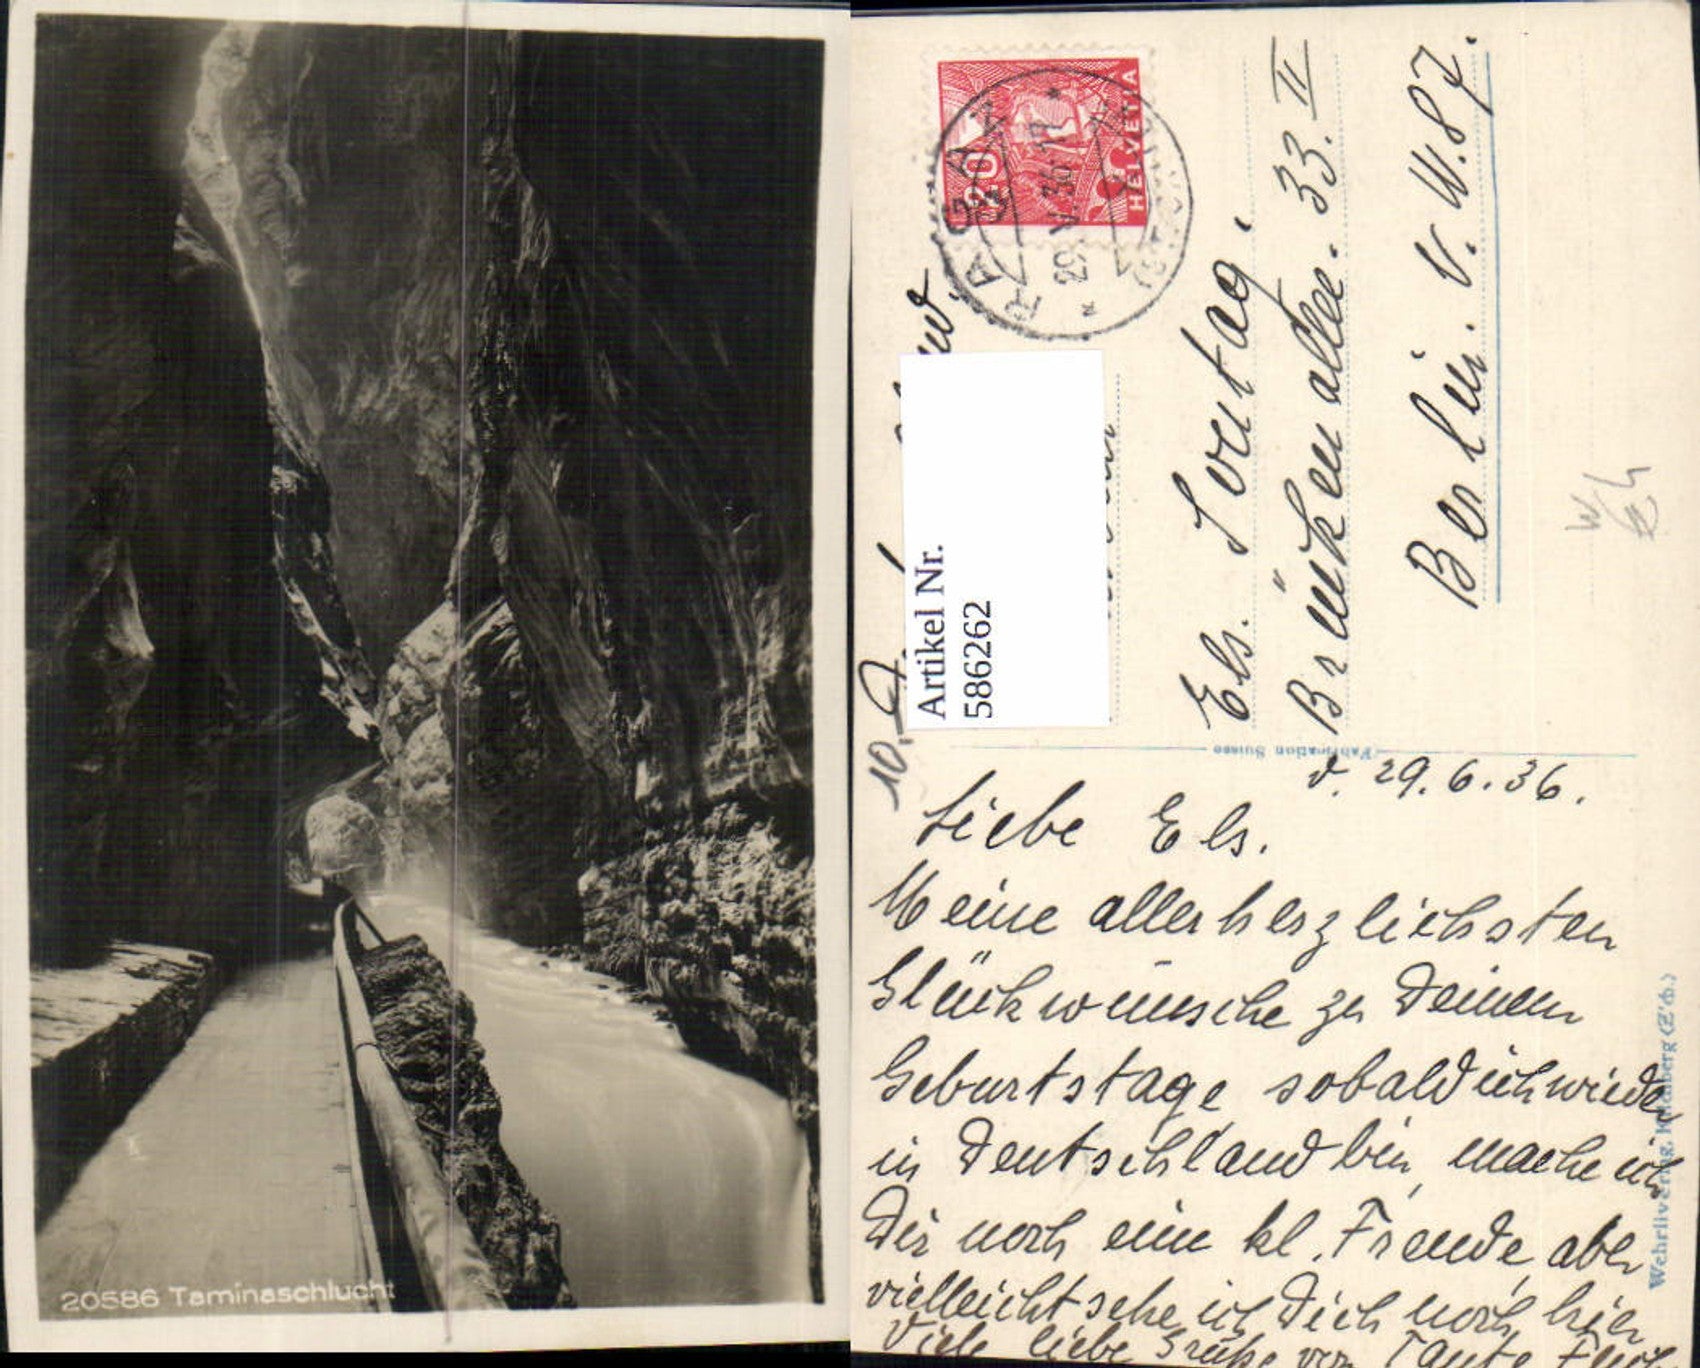 20586 Taminaschlucht
HELVETIA
20
RAGAZ
29. VI. 36. 19
Artikel Nr.
586262
10,-
Els. Sontag.
Brünkenallee. 33. II
Berlin. V. W. 87.
Fabrication Suisse
d. 29.6.36.
Liebe Els.
Meine allerherzlichsten
Glückwünsche zu Deinem
Geburtstage sobald ich wieder
in Deutschland bin, mache ich
Dir noch eine kl. Freude, aber
vielleicht sehe ich Dich noch hier
Viele liebe Grüße von Tante
Wehrliverlag, Kilchberg (Zch.)